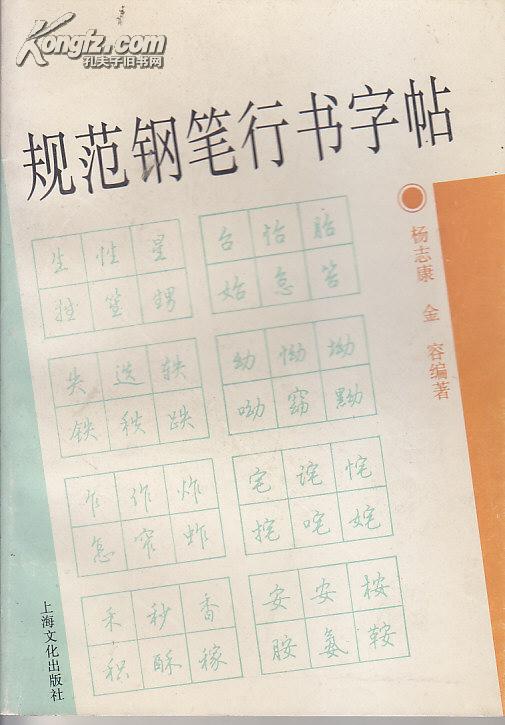 Kongfz.com
孔夫子旧书网
规范钢笔行书字帖
杨志康 金容编著
生 性 星
笙 甥
台 怡 胎
始 怠 笞
失 迭 轶
铁 秩 跌
幼 怮 坳
呦 窈 黝
乍 作 炸
怎 窄 蚱
宅 诧 姹
咤 姹
禾 秒 香
积 酥 稼
安 桉
胺 氨 鞍
上海文化出版社